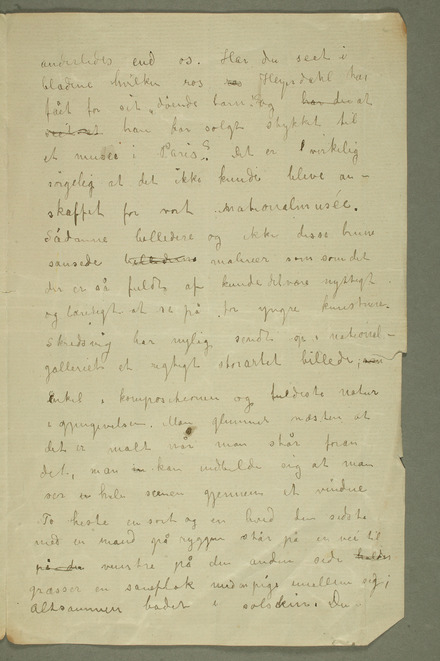 anderledes end os. Har du seet i
bladene hvilken ros Heyerdahl har
fået for sit „døende barn" og har du at
han har solgt stykket til
et museé i Paris? Det er virkelig
sørgelig at det ikke kunde bleve an-
skaffet for vort Nationalmusée.
Sådanne billeder og ikke disse brune
sausede billeder malerier som som det
der er så fuldt af kunde det være nyttigt
og lærerigt at se på for yngre kunstnere.
Skredsvig har nylig sendt op i national-
galleriet et rigtigt storartet billede,
enkel i kompositionen og fuldeste natur
i gjengivelsen. Man glemmer næsten at
det er malt når man står foran
det, man kan indbilde sig at man
ser hele scenen gjennem et vindue
To heste en sort og en hvid den sidste
med en mand på ryggen står på en vei til
på den venstre på den anden side
græsser en saueflok med en pige imellem sig;
Altsammen badet i solskin. Du